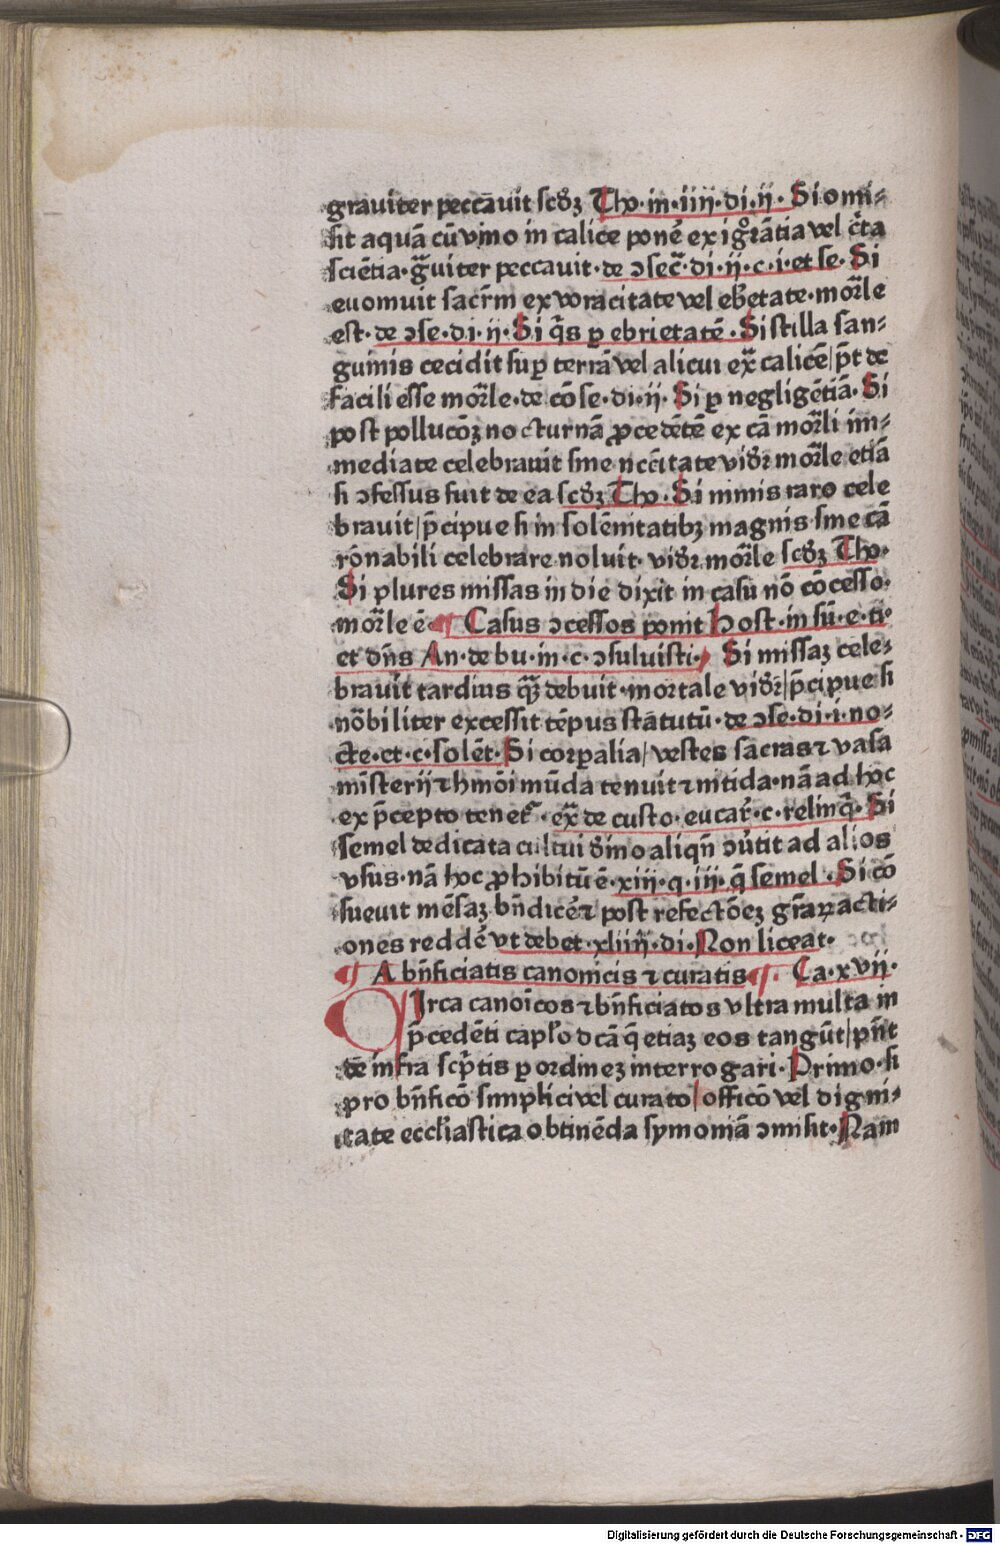 grauiter peccāuit scḋꝫ Tho·in·iiij·di·ij· Si omi⸗
sit aquā cū vino in calice ponēͤ ex igͦrātia vel cͤ̄ta
sciētia·gͣuiter peccauit·de ↄsec̄·di·ij·c·i·et se· Si
euomuit sacr̄m ex voracitate vel eb̓etate·mor̄le
est·de ↄse·di·ij·Si qͥs p ebrietatē·Si stilla san⸗
guinis cecidit suꝑ terrā vel alicui exͣ calicē/pōt de
facili esse mor̄le·de cōse·di·ij·Si ꝑ negligētiā·Si
post pollucōꝫ nocturnā ꝓcedētē ex cā mor̄li im⸗
mediate celebrauit sine nccītate vidꝛ̄ mor̄le etiā
si ↄfessus fuit de ea scḋꝫ Tho·Si nimis raro cele
brauit/p̄cipue si in solēnitatibꝫ magnis sine cā
rōnabili celebrare noluit·vidꝛ̄ mor̄le scḋꝫ Tho·
Si plures missas in die dixit in casu nō cōcesso·
mor̄le ē ¶ Casus ↄcessos ponit Host·in sū·e·ti·
et dn̄s An·de bu·in·c·ↄsuluisti· Si missaꝫ cele⸗
brauit tardius qͣꝫ debuit·mortale vidꝛ̄/p̄cipue si
nōbiliter excessit tēpus statutū·de ↄse·di·i·no⸗
cte·et·c·solēt·Si corpalia/vestes sacras ⁊ vasa
mīsterij ⁊ hmōi mūda tenuit ⁊ nitida·nā ad hoc
ex p̄cepto tenet᷑·exͣ de custo·eucar̄·c·relinqͥ·Si
semel dedicata cultui dīno aliqn̄ ↄūtit ad alios
vsus·nā hoc ꝓhibitū ē·xiii·q·iii·q̄ semel·Si cō
sueuit mēsaꝫ bn̄dicē ⁊ post refectōeꝫ gr̄aꝝ acti⸗
ones reddē vt debet·xliiij·di·Non liceat·
¶ A bn̄ficiatis canonicis ⁊ curatis ¶· Ca·xvij·
CIrca canoīcos ⁊ bn̄ficiatos vltra multa in
p̄cedēti capl̓o d cā q̄ etiaꝫ eos tangūt/pn̄t
de infra scp̄tis ꝑ ordineꝫ interrogari·Primo·si
pro bn̄ficō simplici vel curato/officō vel digni⸗
tate eccl̓iastica obtinēda symoniā ↄmisit·Nam
Digitalisierung gefördert durch die Deutsche Forschungsgemeinschaft - DFG